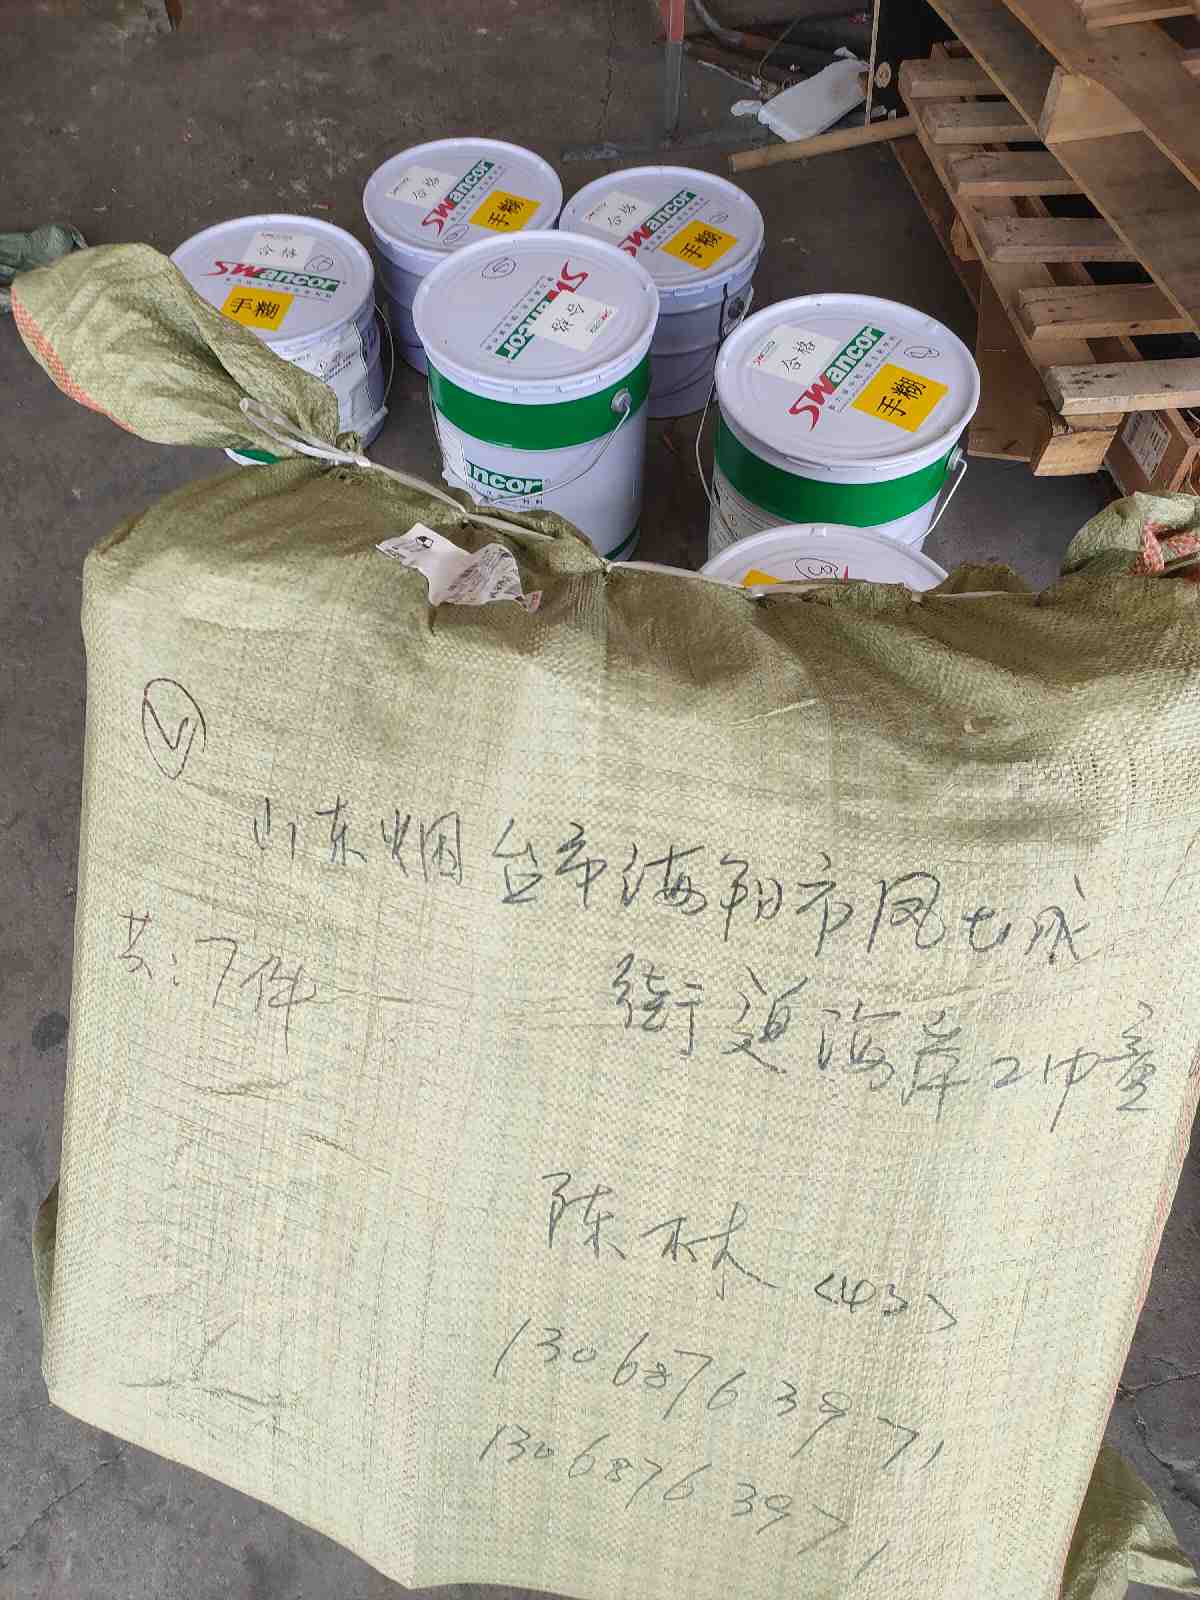 SWancor
合格
手糊
SWancor
合格
手糊
SWancor
合格
手糊
SWancor
合格
ancor
SWancor
合格
手糊
③
山东烟台市海阳市凤城
街道海岸工中童
共:7件
陈林
13068763971
13068763971